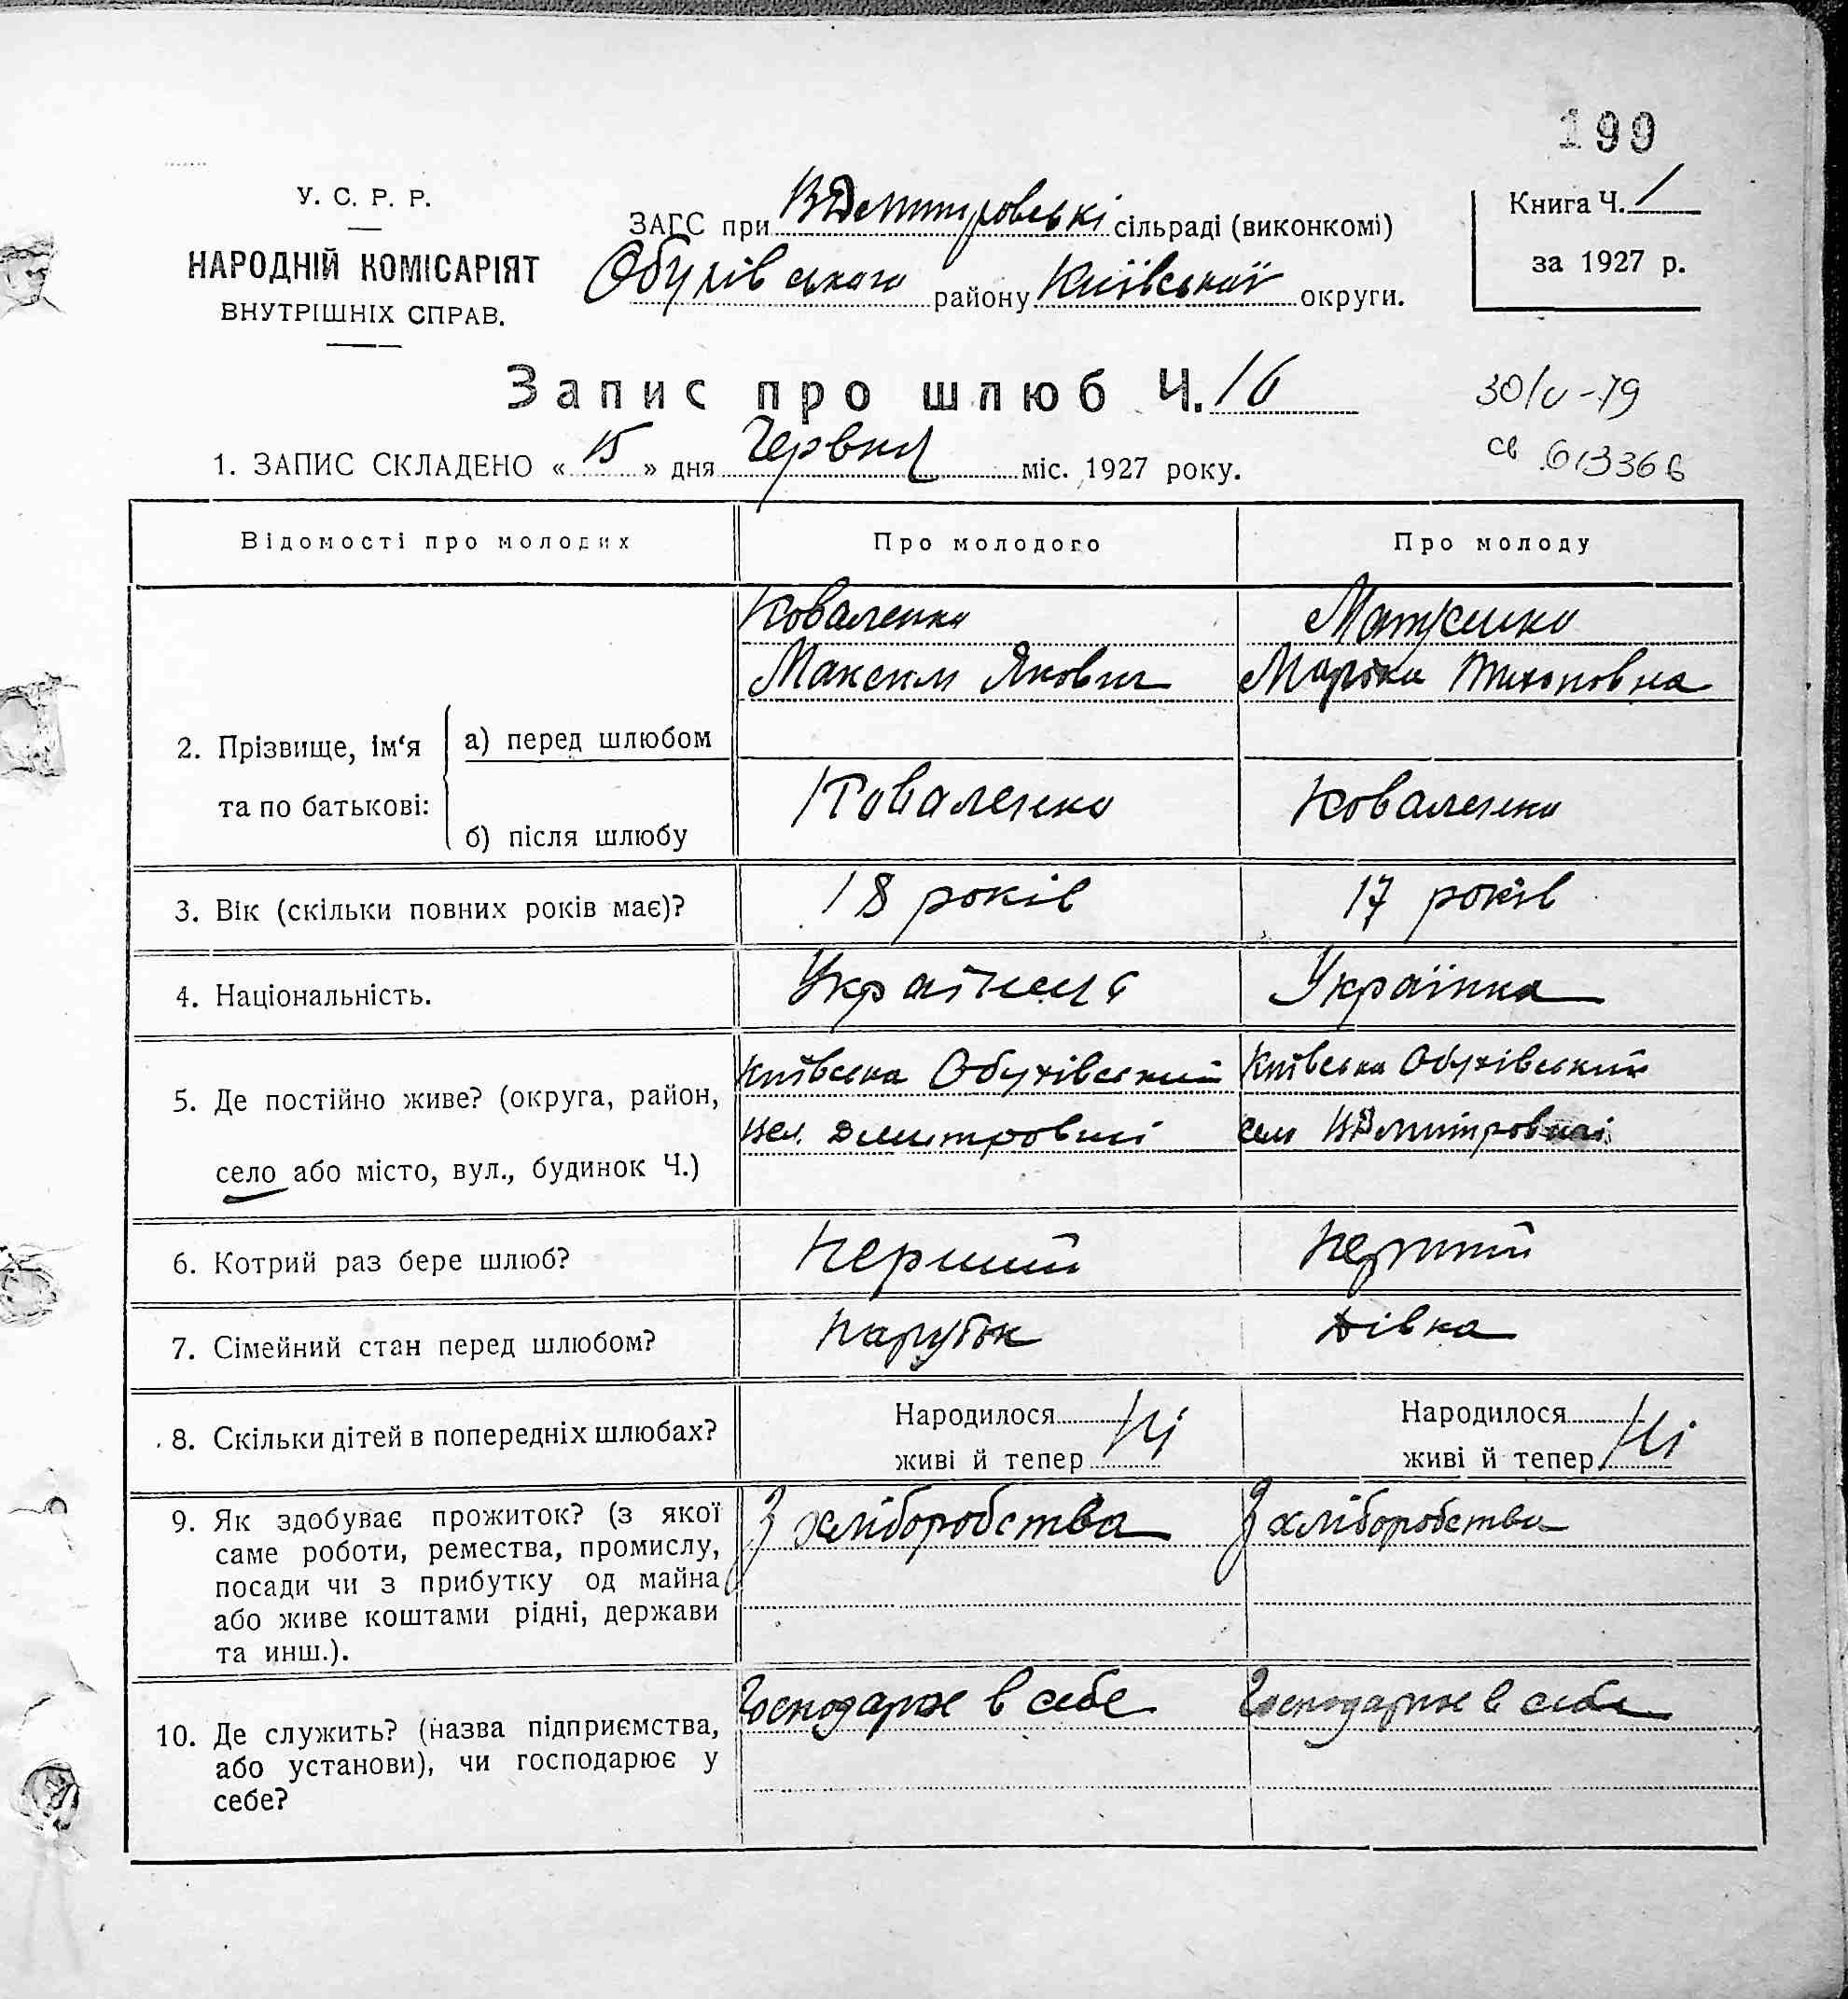 199
У. С. Р. Р.
НАРОДНІЙ КОМІСАРІЯТ
ВНУТРІШНІХ СПРАВ.
ЗАГС при ВДмитровські сільраді (виконкомі)
Обухівського району Київської округи.
Книга Ч. 1
за 1927 р.
Запис про шлюб Ч. 16
30/V-79
св 613366
1. ЗАПИС СКЛАДЕНО « 15 » дня Червня міс. 1927 року.
Відомості про молодих Про молодого Про молоду
2. Прізвище, ім'я та по батькові:
а) перед шлюбом
Коваленко
Максим Якович
Марія Тихоновна
б) після шлюбу
Коваленко Коваленко
3. Вік (скільки повних років має)? 18 років 17 років
4. Національність. Українець Українка
5. Де постійно живе? (округа, район,
село або місто, вул., будинок Ч.)
Київська Обухівський
Вел. Дмитровці
Київська Обухівський
село ВДмитровці
6. Котрий раз бере шлюб? Перший Перший
7. Сімейний стан перед шлюбом? Парубок Дівка
8. Скільки дітей в попередніх шлюбах?
Народилося
живі й тепер Ні
Народилося
живі й тепер Ні
9. Як здобуває прожиток? (з якої
саме роботи, ремества, промислу,
посади чи з прибутку од майна
або живе коштами рідні, держави
та инш.).
З хліборобства З хліборобства
10. Де служить? (назва підприємства,
або установи), чи господарює у
себе?
Господарює в себе Господарює в себе